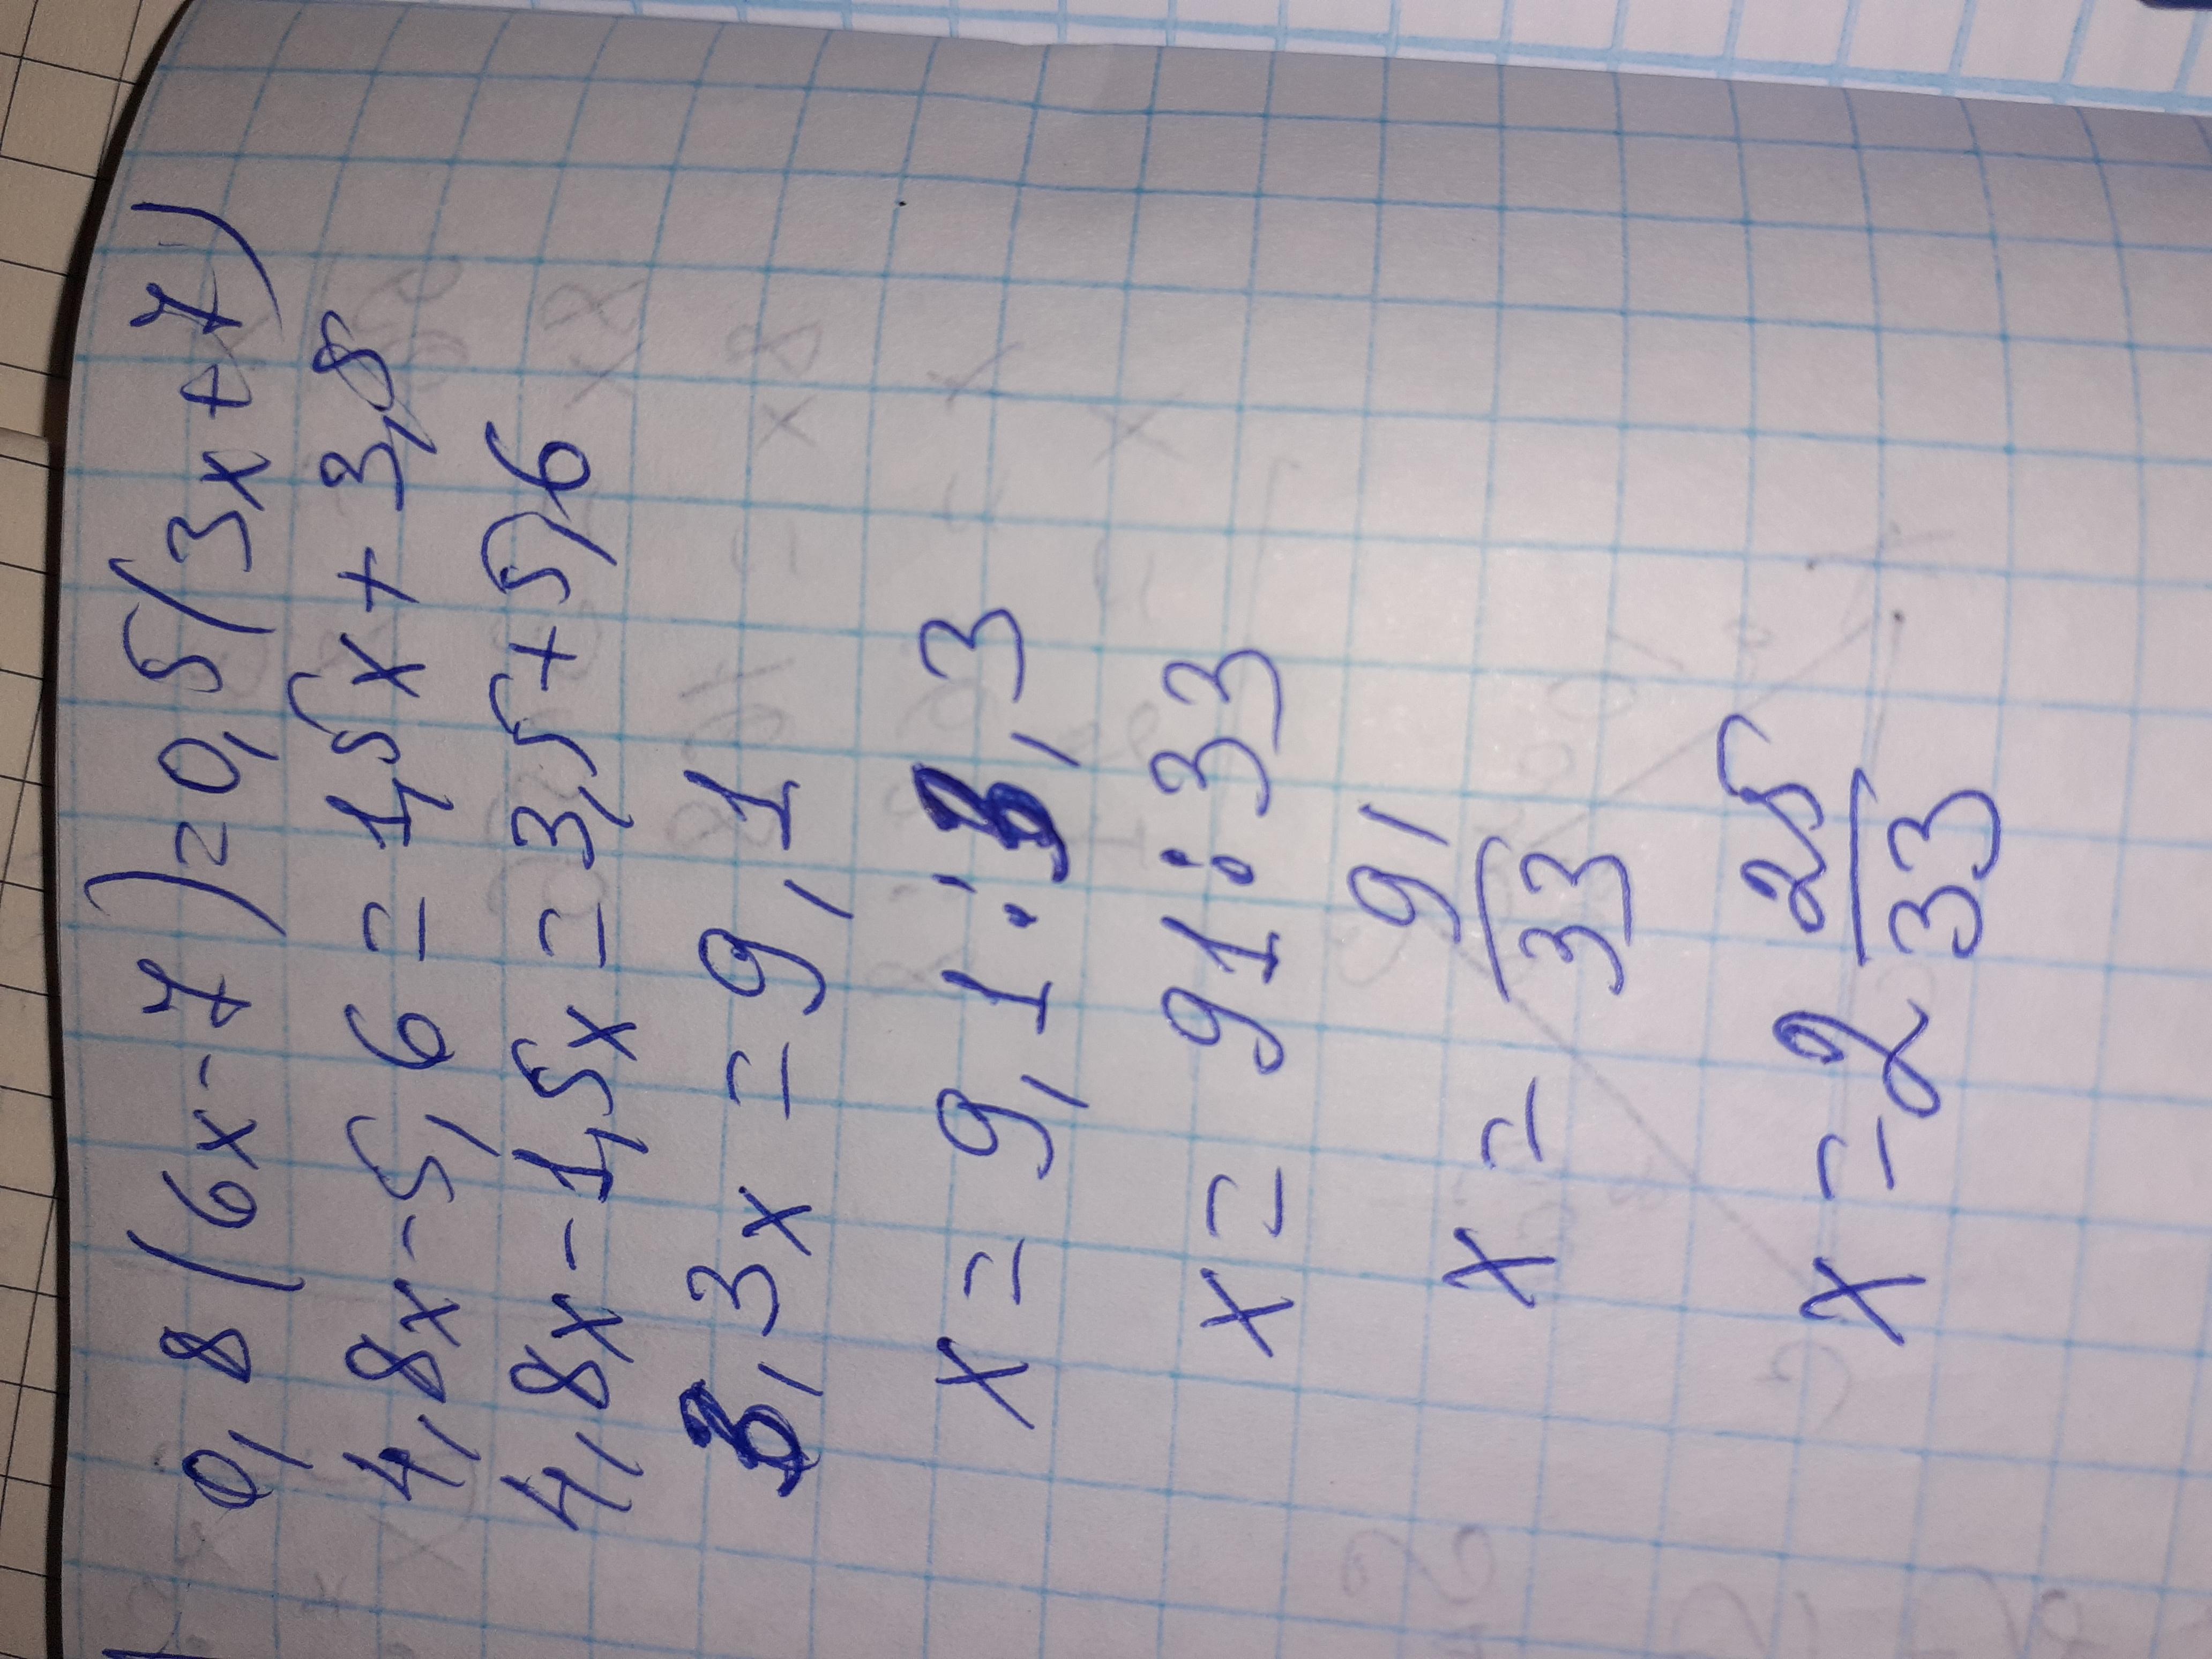 0,8(6x-7)=0,5(3x+7)
4,8x-5,6=1,5x+3,5
4,8x-1,5x=3,5+5,6
3,3x=9,1
x=9,1:3,3
x=91:33
x=91/33
x=2 25/33